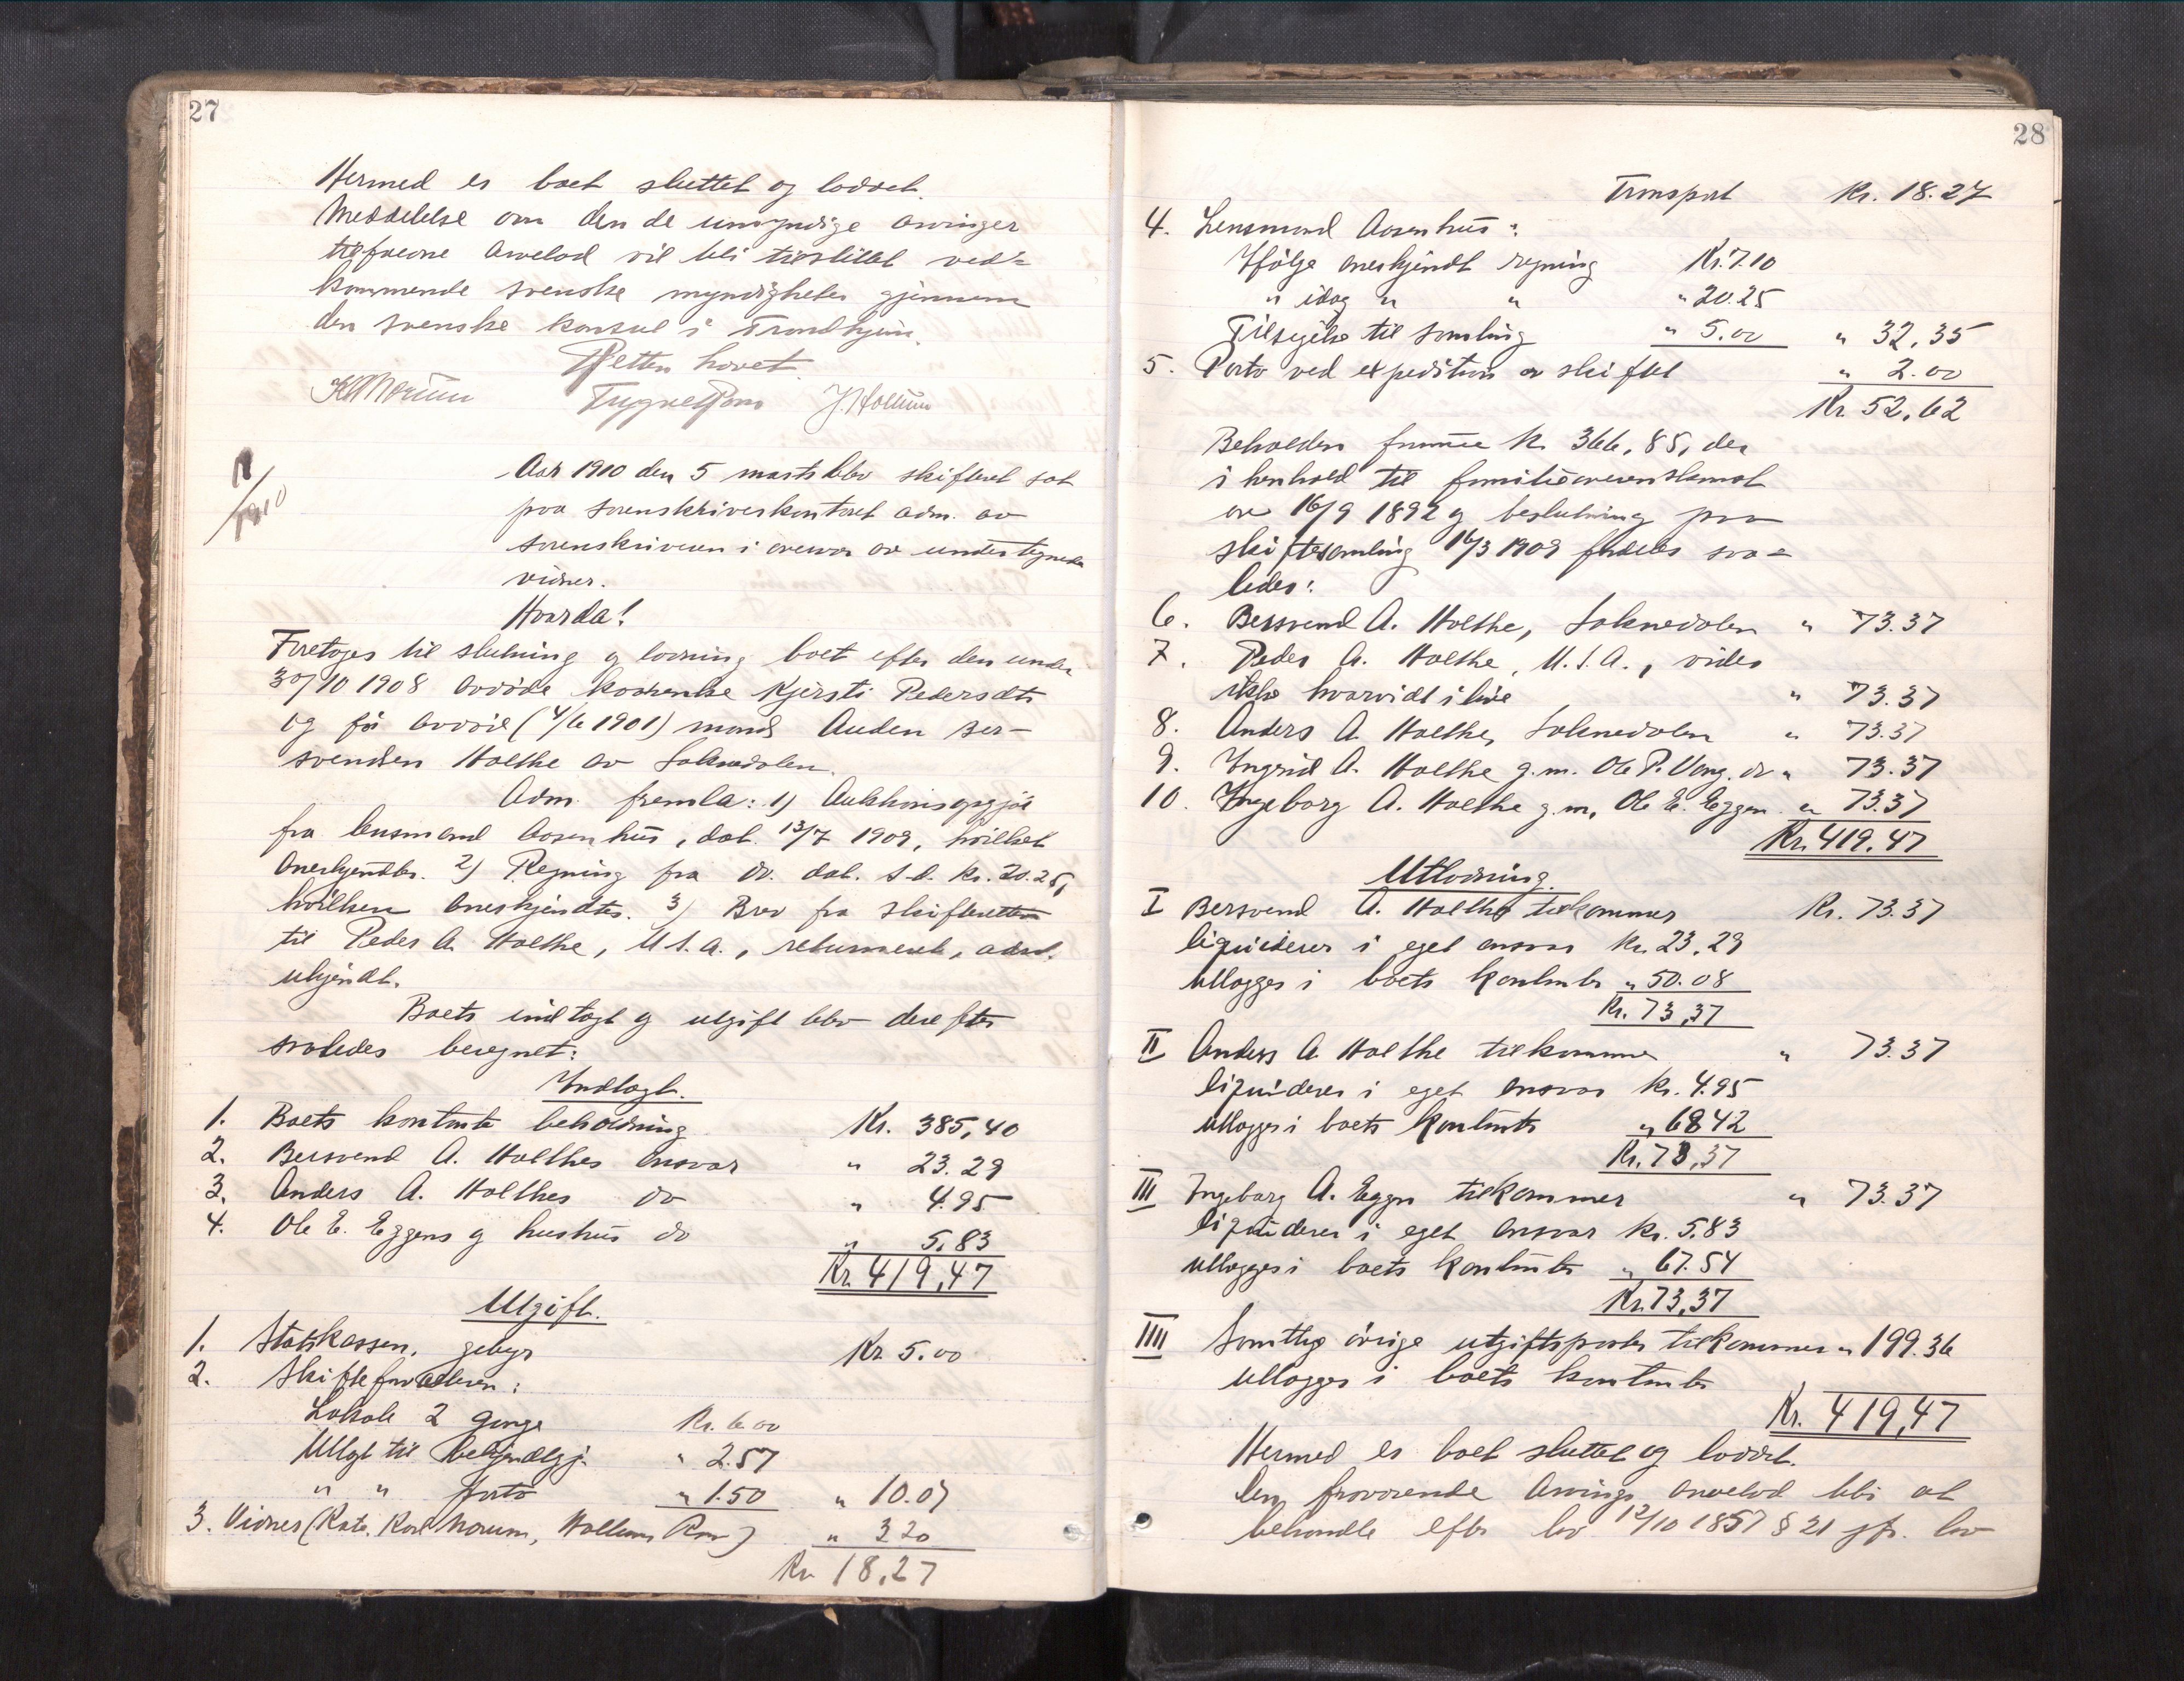 27
Hermed er boet sluttet og loddet.
Meddelelse om den de umyndige arvinger
tilfaldne arvelod vil bli tilstillet ved=
kommende svenske myndigheter gjennem
den svenske konsul i Trondhjem.
Retten hævet.
K Morum Trygve Rom J. Hollum
/1910
Aar 1910 den 5 marts blev skifteret sat
paa sorenskriverkontoret adm. av
sorenskriveren i overvær av undertegnede
vidner.
Hvorda!
Foretoges til slutning og lodning boet efter den under
30/10 1908 avdøde kaarenke Kjersti Pedersdtr
og før avdøde (4/6 1901) mand Anden Ber-
svendsen Holthe av Soknedalen.
Adm. fremla: 1) Auktionsopgjør
fra lensmand Aasenhus, dat. 13/7 1909, hvilket
anerkjendtes. 2) Regning fra do. dat. s.d. kr. 20.25,
hvilken anerkjendtes. 3) Brev fra skifteretten
til Peder A. Holthe, U.S.A., returneret, adr.
ukjendt.
Boets indtægt og utgift blev derefter
saaledes beregnet:
Indtægt.
1. Boets kontante beholdning Kr. 385,40
2. Bersvend A. Holthes ansvar " 23.29
3. Anders A. Holthes do " 4.95
4. Ole E. Eggens g hustrus do " 5,83
Kr. 419,47
Utgift.
1. Statskassen, gebyr Kr. 5.00
2. Skifteforvalteren:
Lokale 2 gange Kr. 6.00
Utlagt til bekjendtgj. " 2.57
" " porto " 1.50 " 10.07
3. Vidner (Kate. Karl Morum, Hollum, Rom) " 3 20
Kr 18,27
28
Transport Kr. 18.27
4. Lensmand Aasenhus:
Ifølge anerkjendt regning Kr. 7.10
" idag " " " 20.25
Tilsigelse til samling " 5.00 " 32,35
5. Porto ved expedition av skiftet " 2.00
Kr. 52,62
Beholden formue kr. 366,85, der
i henhold til familieoverenskomst
av 16/9 1892 og beslutning paa
skiftesamling 16/3 1909 fordeles saa=
ledes:
6. Bersvend A. Holthe, Soknedalen " 73.37
7. Peder A. Holthe, U.S.A., vides
ikke hvorvidt i live " 73.37
8. Anders A. Holthe, Soknedalen " 73.37
9. Ingrid A. Holthe g.m. Ole P. Vang. do " 73.37
10. Ingeborg A. Holthe g.m. Ole E. Eggen. " 73.37
Kr. 419.47
Utlodning.
I Bersvend A. Holthe tilkommer Kr. 73.37
likviderer i eget ansvar kr. 23.29
utlægges i boets kontanter " 50.08
Kr. 73,37
II Anders A. Holthe tilkommer " 73.37
likviderer i eget ansvar kr. 4.95
utlægges i boets kontanter " 68 42
Kr. 73,37
III Ingeborg A. Eggen tilkommer " 73.37
likviderer i eget ansvar kr. 5.83
utlægges i boets kontanter " 67.54
Kr. 73,37
IIII Samtlige øvrige utgiftsposter tilkommer " 199.36
utlægges i boets kontanter
Kr. 419,47
Hermed er boet sluttet og loddet.
Den fraværende arvings arvelod blir at
behandle efter lov 12/10 1857 § 21 jfr. lov